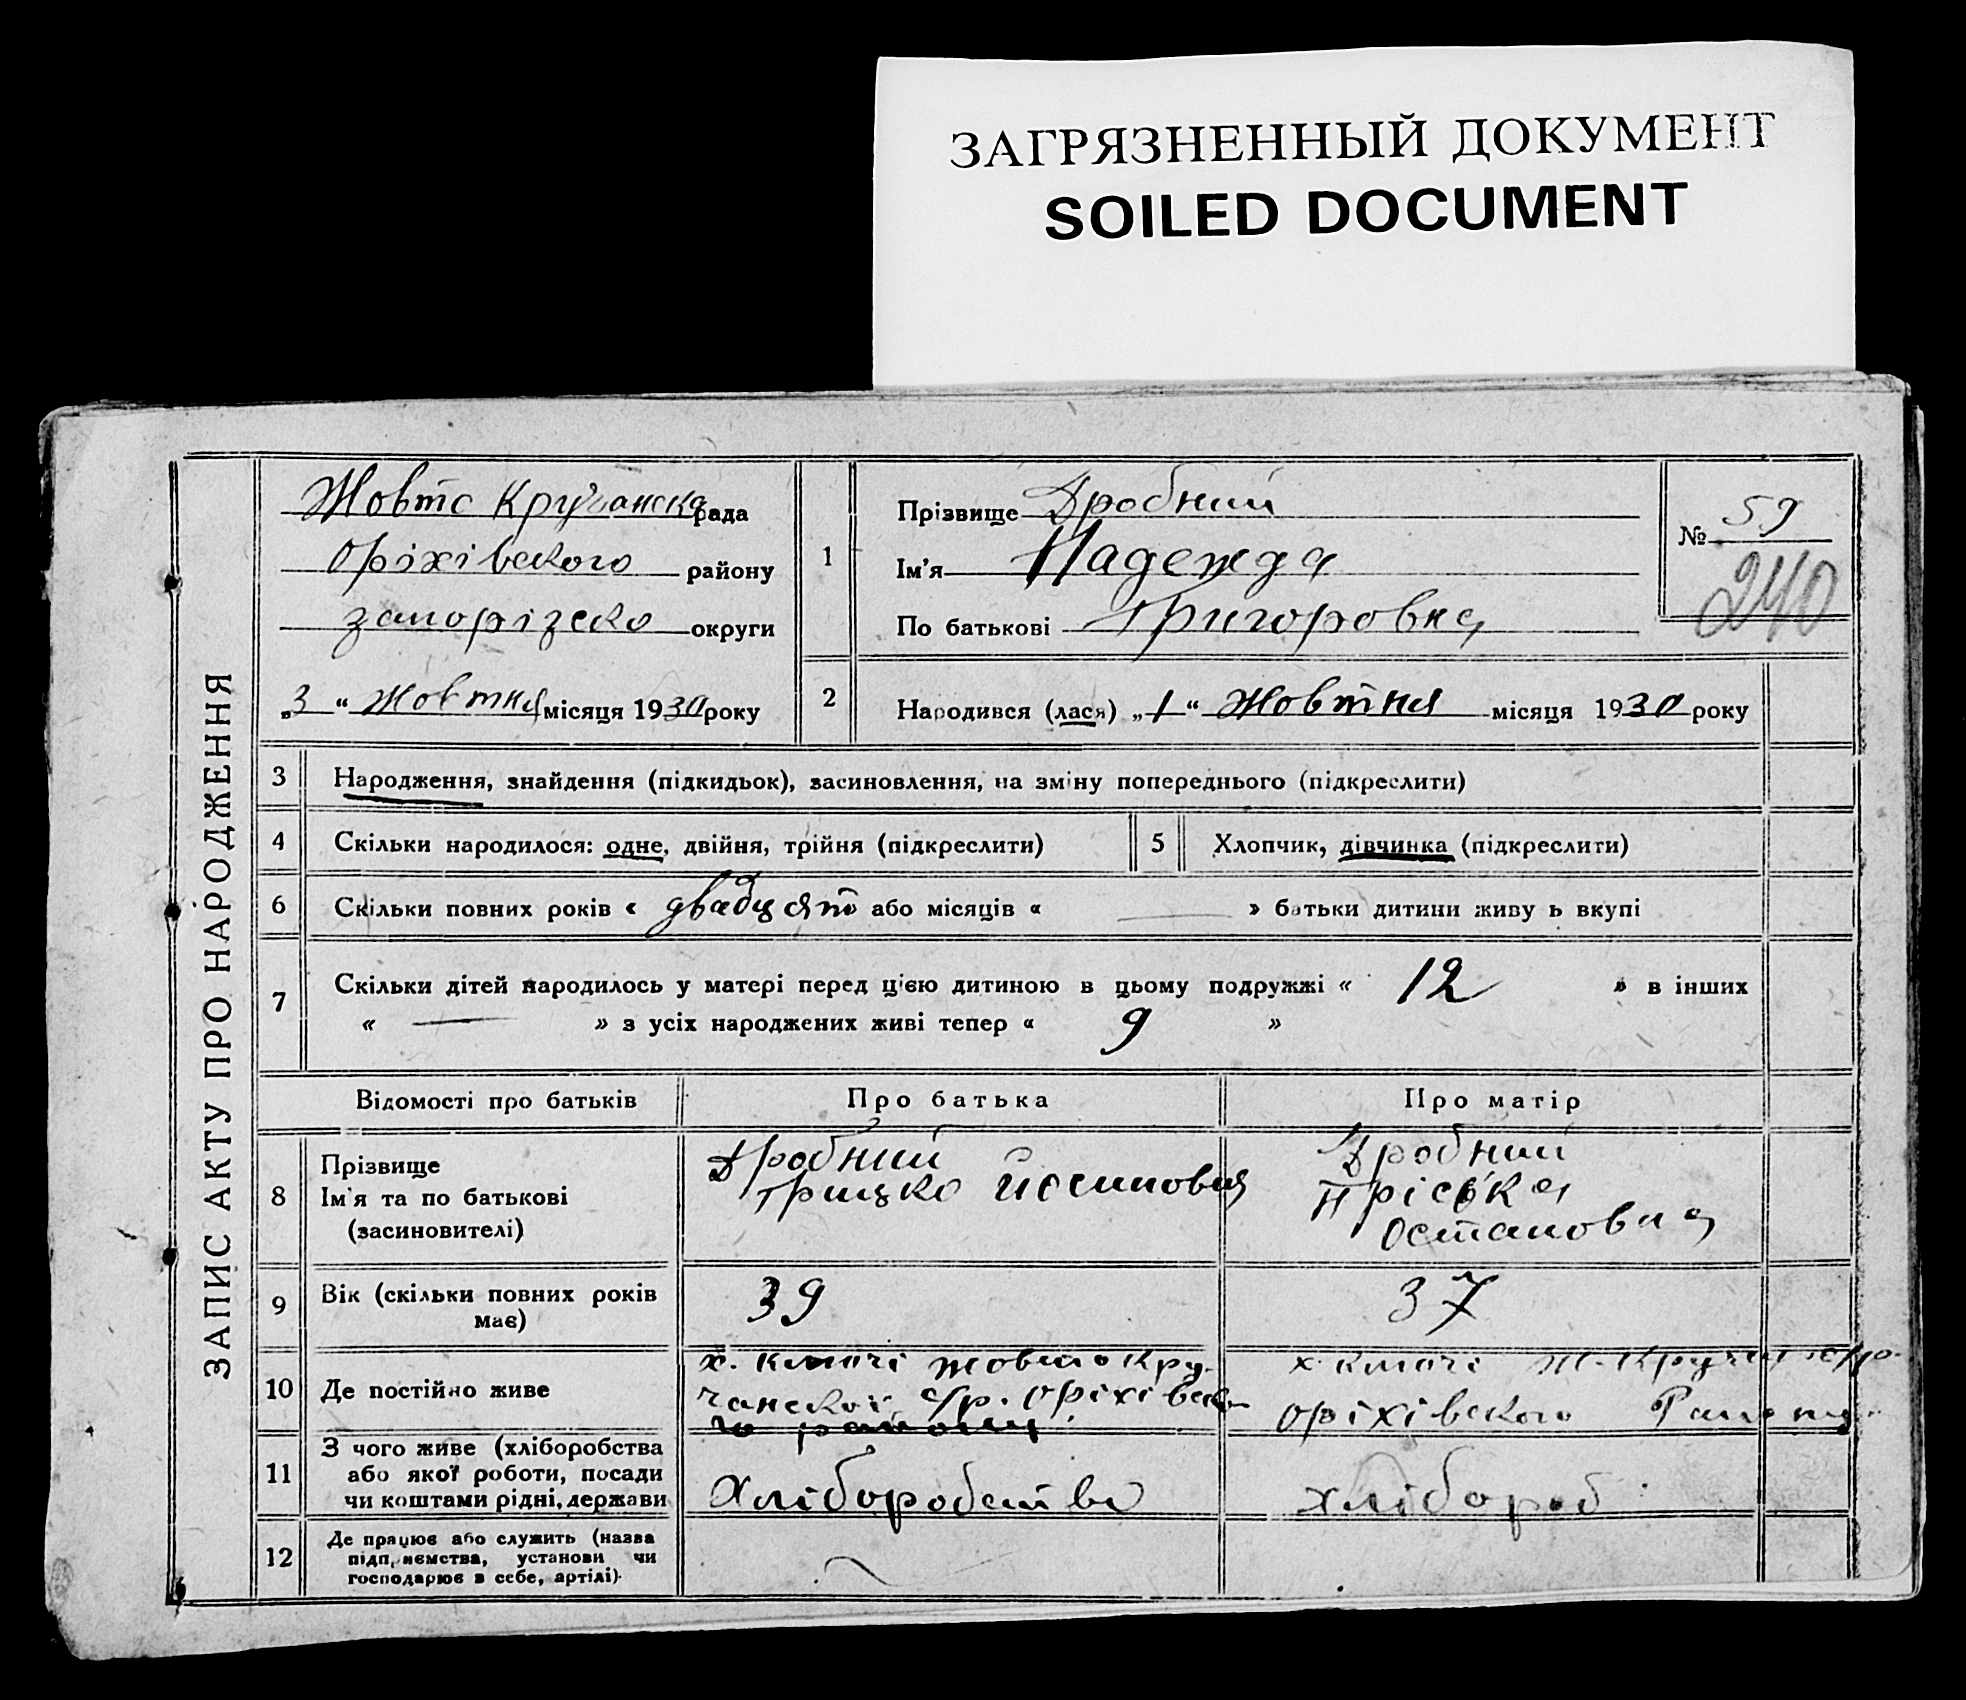 ЗАГРЯЗНЕННЫЙ ДОКУМЕНТ
SOILED DOCUMENT
ЗАПИС АКТУ ПРО НАРОДЖЕННЯ
Жовто Кручанска рада
Оріхівского району
Запорізско округи
„3“ Жовтня місяця 1930 року
1
Прізвище Дробний
Ім'я Надежда
По батькові Григоровна
№ 59
240
2 Народився (лася) „1“ Жовтня місяця 1930 року
3 Народження, знайдення (підкидьок), засиновлення, на зміну попереднього (підкреслити)
4 Скільки народилося: одне, двійня, трійня (підкреслити) 5 Хлопчик, дівчинка (підкреслити)
6 Скільки повних років « двадцять або місяців « — » батьки дитини живуть вкупі
7 Скільки дітей народилось у матері перед цією дитиною в цьому подружжі « 12 » в інших
« — » з усіх народжених живі тепер « 9 »
Відомості про батьків Про батька Про матір
8 Прізвище
Ім'я та по батькові
(засиновителі)
Дробний
Грицко Йосипович
Дробний
Пріська
Остаповна
9 Вік (скільки повних років
має)
39
37
10 Де постійно живе
х. Ключі Жовтокру-
чанскої с/р. Оріхівско-
го району
х. Ключі Ж-Кручан с/р.
Оріхівского Району
11 З чого живе (хліборобства
або якої роботи, посади
чи коштами рідні, держави
Хліборобство
хлібороб
12 Де працює або служить (назва
підприємства, установи чи
господарює в себе, артілі)